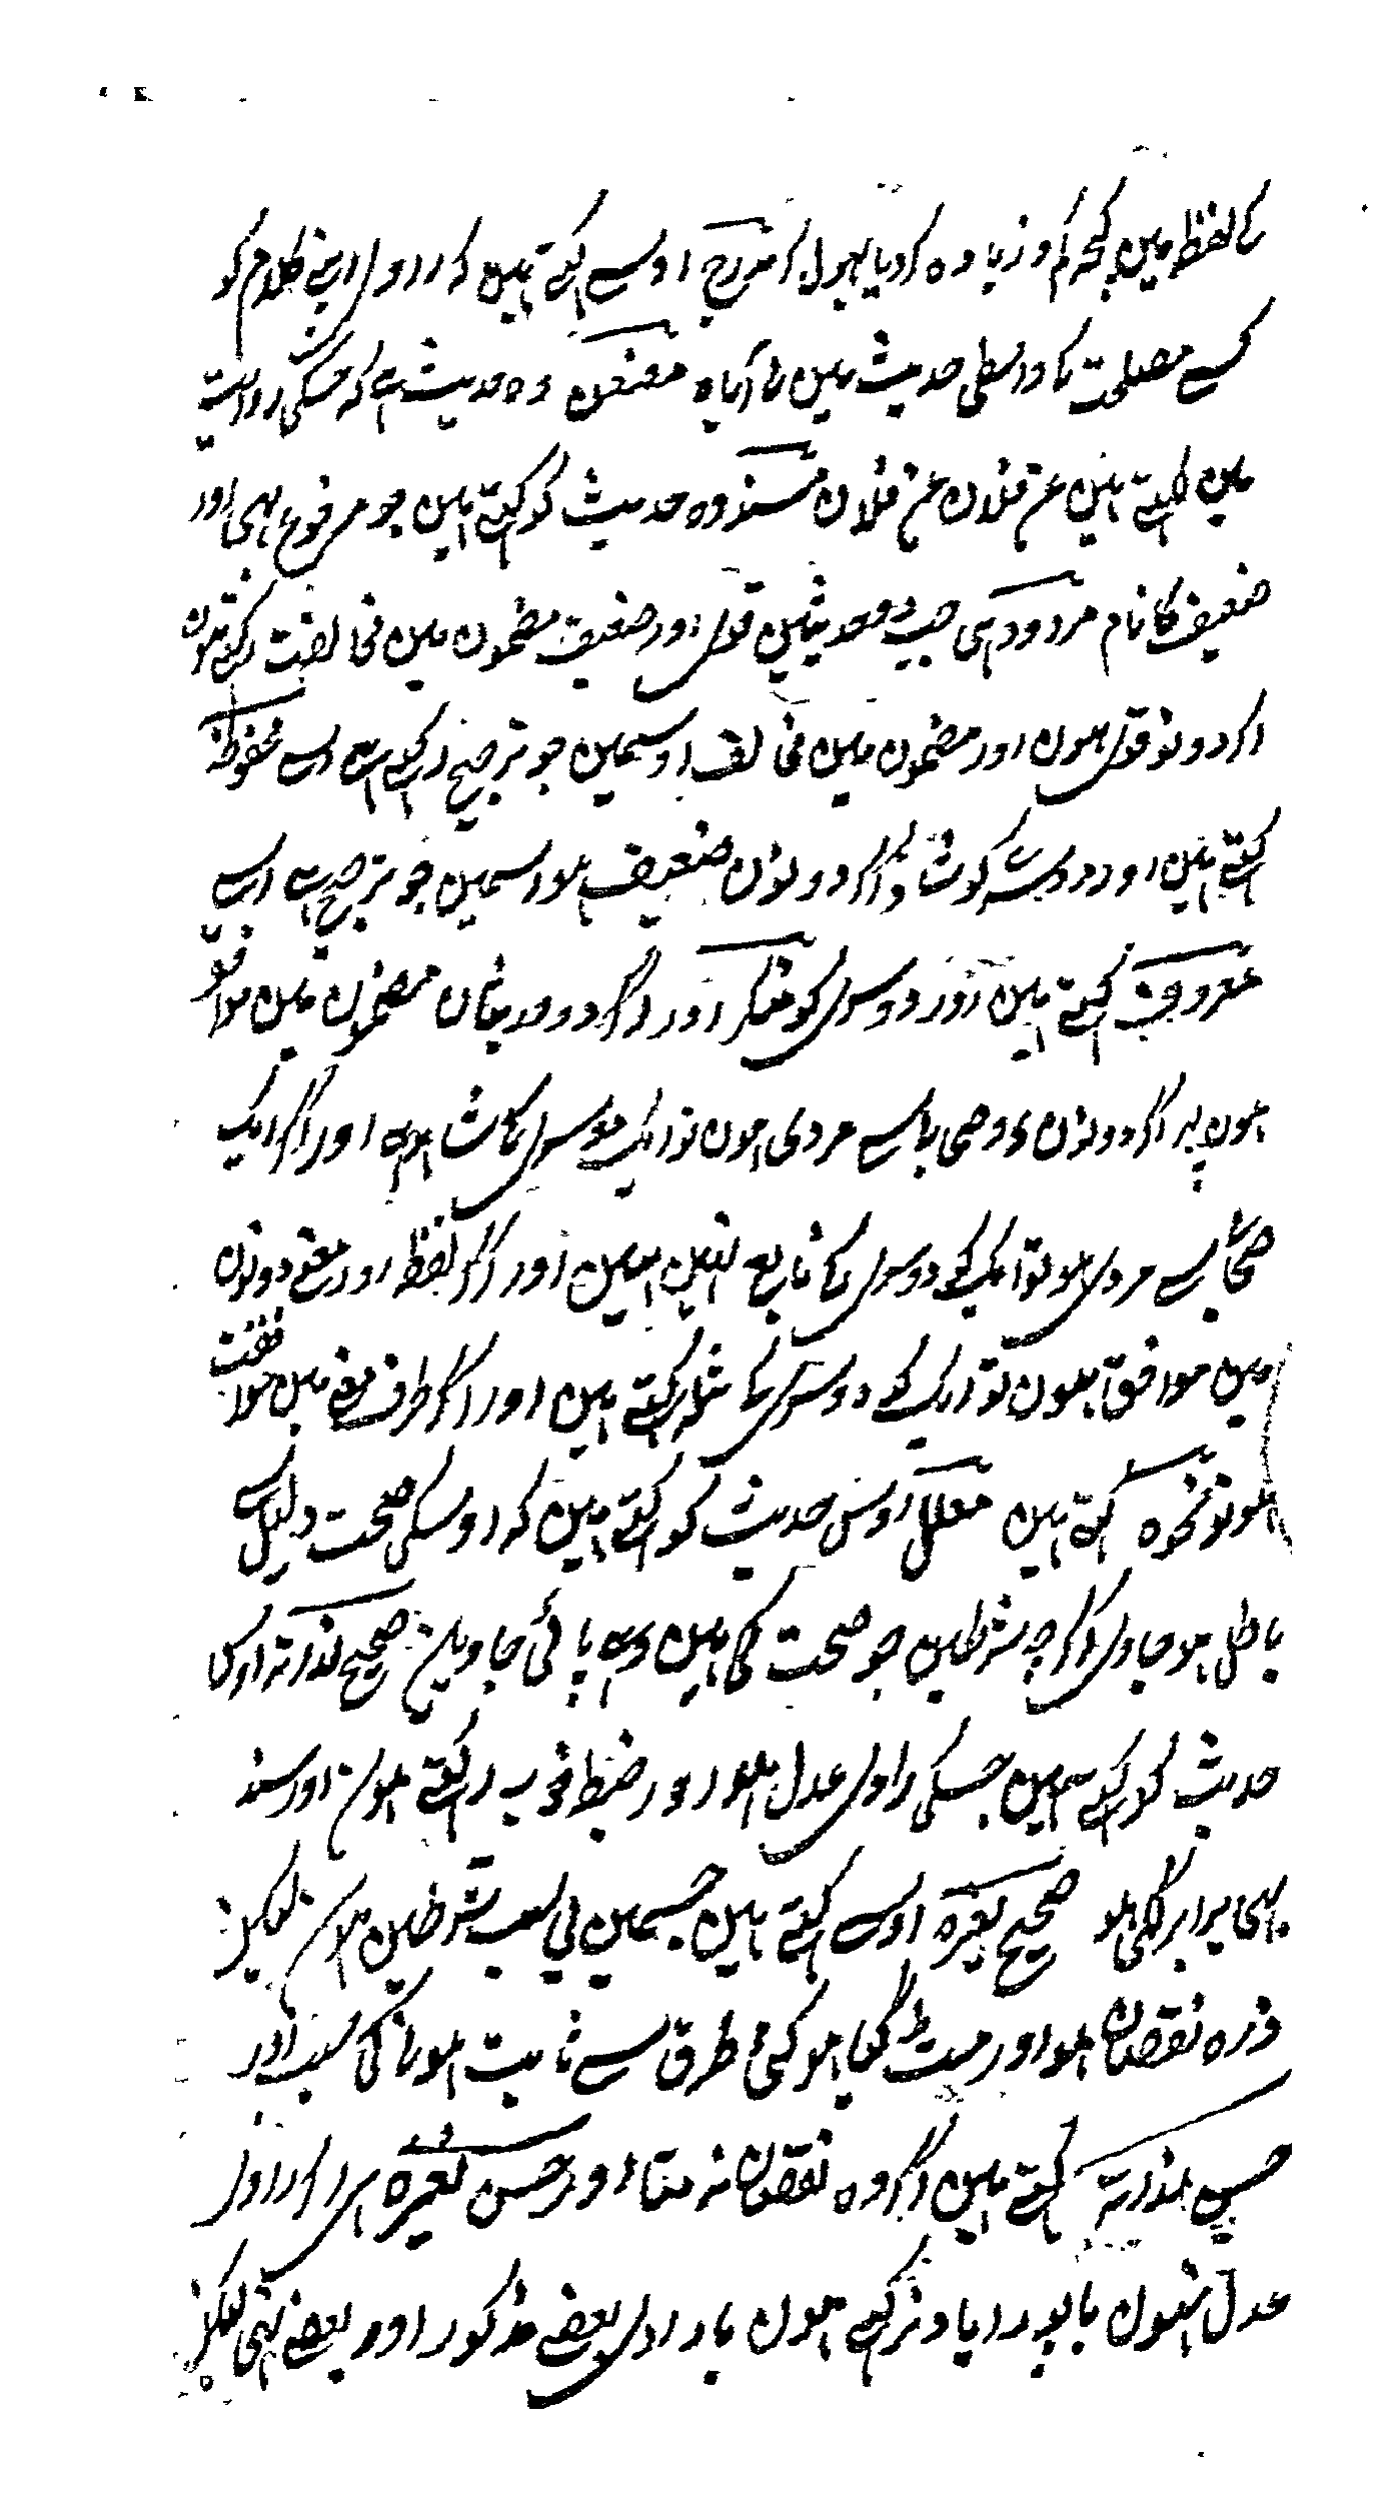 کا لفظ مین کچھ کم و زیادہ کر دیا ہو مدرج اوسے کہتے ہین کہ راوی اپنے کلام کو
کسے مصلحت کا واسطی حدیث مین لا آیا ہو معنعن وہ حدیث ہے کہ جسکی روایت
مین کہتے ہین عن فلان عن فلان مسند وہ حدیث کو کہتے ہین جو مرفوع ہی اور
ضعیف کا نام مردود ہی جب دو حدیثین قوی اور ضعیف مضمون مین مخالفت رکھے ہون
اگر دونو قوی ہون اور مضمون مین مخالف اوسمین جو ترجیح رکھے ہے اسے محفوظ
کہتے ہین اور دوسرے کو شاذ اگر دونون ضعیف ہو اسمین جو ترجیح ہے اسے
معروف کہتے ہین اور دوسری کو منکر اور اگر دو حدیثان مضمون مین موافق
ہون پر اگر دونون دو صحابی سے مروی ہون تو ایک دوسری کا شاہد ہے اور اگر ایک
صحابی سے مروی ہو تو ایک کے دوسری کا تابع ہین اور اگر لفظ اور معنے دونون
مین موافق ہون تو ایک کے دوسری کا مثلہ کہتے ہین اور اگر طرف معنے مین موافقت
ہو تو نحوہ کہتے ہین معلل اوس حدیث کو کہتے ہین کہ اوسکی صحت دلیل سے
باطل ہو جاوی اگرچہ شرطین جو صحت کی ہین وہ پائی جاوین صحیح لذاتہ اوس
حدیث کو کہتے ہین جسکی راوی عدل ہو اور ضبط خوب رکھتے ہون اور سند
بہی برابر لگی ہو صحیح لغیرہ اوسے کہتے ہین جسمین یی سب شرطین ہون لیکن
ذرہ نقصان ہو اور مٹ گیا ہو کئی طرق سے ثابت ہونا کی سبب اور
حسن لذاتہ کہتے ہین اگر وہ نقصان نہ مٹا اور حسن لغیرہ اگر راوی
عدل نہون یا پورا یاد نرکھے ہون یا راوی بعضے مذکور اور بعضے نہی لیکن